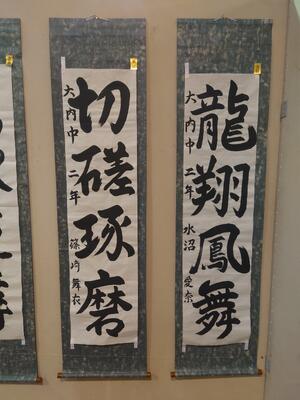 龍翔鳳舞
大内中 二年 水沼 愛奈
切磋琢磨
大内中 二年 篠崎 舞衣